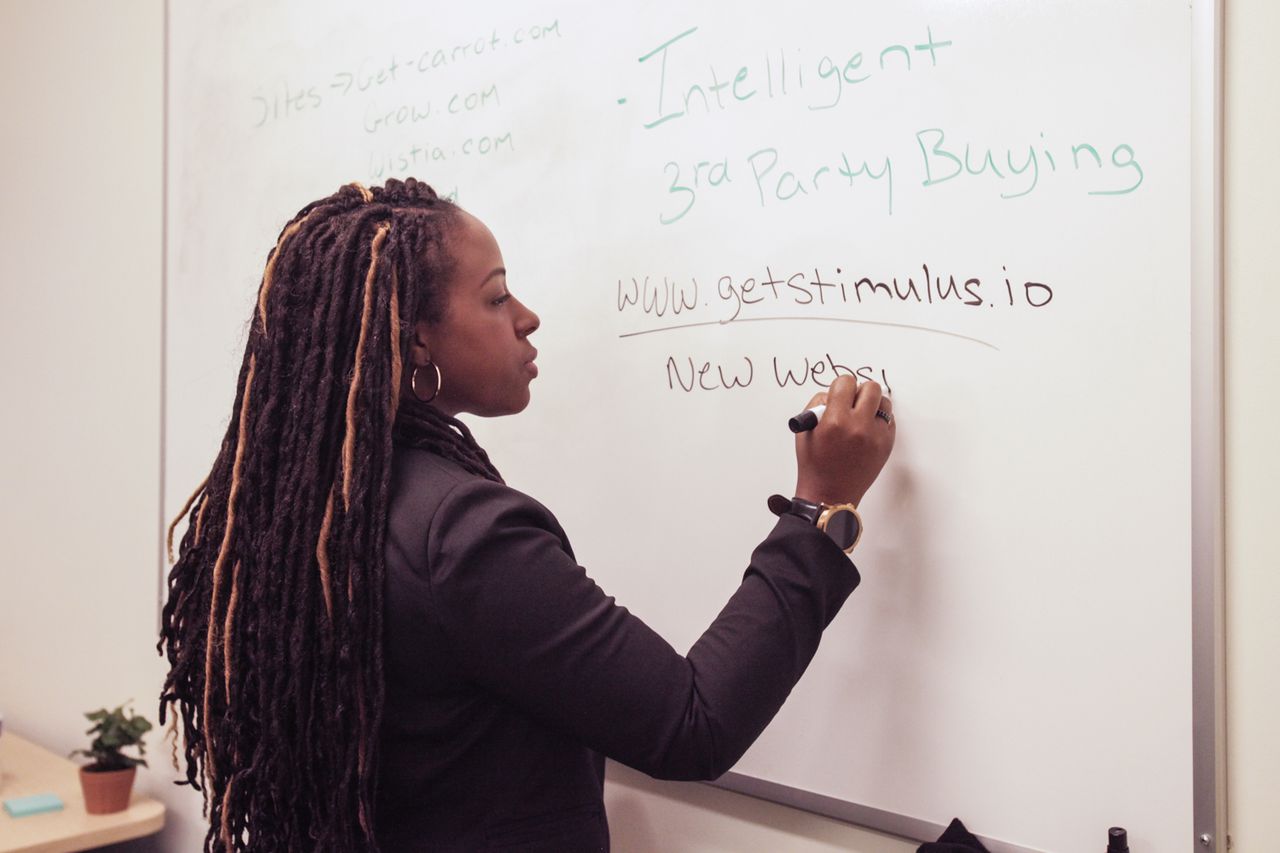 Sites → Get-carrot.com
Grow.com
Wistia.com
- Intelligent
3rd Party Buying
www.getstimulus.io
New Websi